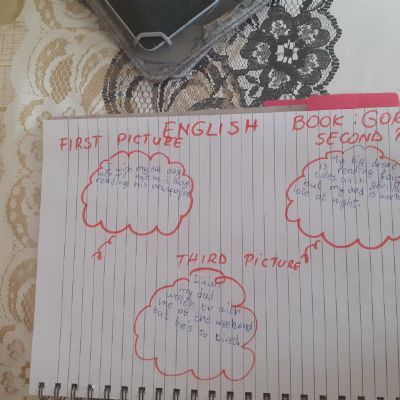 ENGLISH
BOOK : GOR
FIRST PICTURE
SECOND
I wish my dad play
with me but he's busy
reading his newspaper
My big desire
is reading fairy
tales with
but my dad is work
late at night.
THIRD PICTURE
I wish
my dad
watch tv with
me at the weekend
but he's so tired.